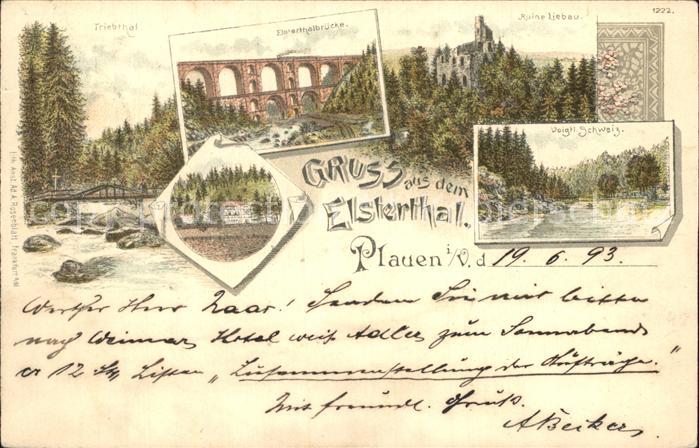 1222.
Triebthal
Elsterthalbrücke.
Ruine Liebau.
Voigtl. Schweiz.
GRUSS
aus dem
Elsterthal.
Plauen i/V. d 19. 6. 93.
Werther Herr Zaar! Senden Sie mir bitte
nach Weimar, Hotel weiß Adler zum Sonnabend
12 Listen „Zusammenstellung der
Mit freundl. Gruß.
A Becker
Lith. Anst. Ad. A. Rosenblatt, Frankfurt a/M